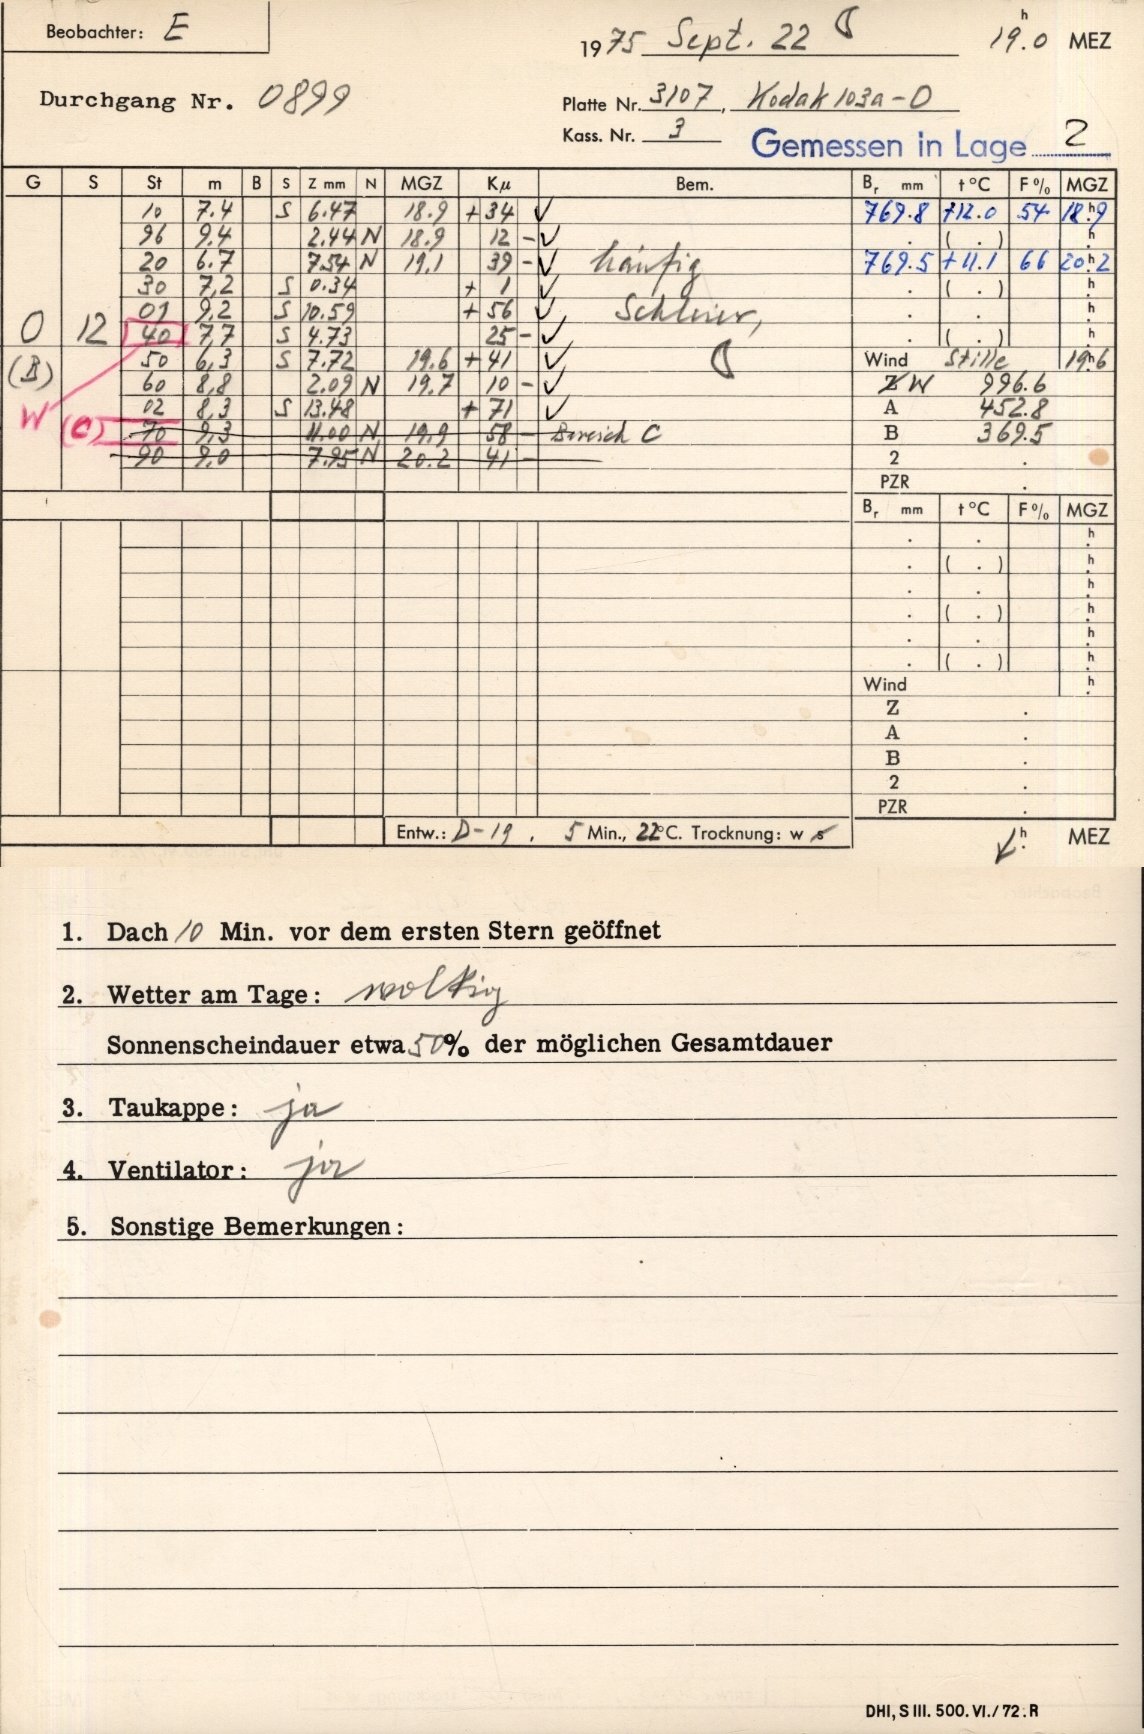 Beobachter: E
1975 Sept. 22 19.ʰ0 MEZ
Durchgang Nr. 0899
Platte Nr. 3107, Kodak 103a-O
Kass. Nr. 3
Gemessen in Lage 2
G S St m B S Z mm N MGZ Kμ Bem. Bᵣ mm t °C F % MGZ
10 7.4 S 6.47 18.9 + 34 ✓ 769.8 +12.0 54 18.ʰ9
96 9.4 2.44 N 18.9 12 - ✓ . ( . ) ʰ.
20 6.7 7.54 N 19.1 39 - ✓ häufig 769.5 +11.1 66 20.ʰ2
30 7,2 S 0.34 + 1 ✓ . ( . ) ʰ.
01 9,2 S 10.59 + 56 ✓ Schleier, . . ʰ.
0 12 40 7,7 S 4.73 25 - ✓ . ( . ) ʰ.
(B) 50 6,3 S 7.72 19.6 + 41 ✓ Wind Stille 19.ʰ6
60 8,8 2.09 N 19.7 10 - ✓ Z W 996.6
W 02 8,3 S 13.48 + 71 ✓ A 452.8
(C) 70 9,3 11.00 N 19.9 58 - Bereich C B 369.5
90 9,0 7.95 N 20.2 41 - 2 .
PZR .
Bᵣ mm t °C F % MGZ
. . ʰ.
. ( . ) ʰ.
. . ʰ.
. ( . ) ʰ.
. . ʰ.
. ( . ) ʰ.
Wind ʰ.
Z .
A .
B .
2 .
PZR .
Entw.: D-19 . 5 Min., 22°C. Trocknung: w s
ʰ. MEZ
1. Dach 10 Min. vor dem ersten Stern geöffnet
2. Wetter am Tage: wolkig
Sonnenscheindauer etwa 50% der möglichen Gesamtdauer
3. Taukappe: ja
4. Ventilator: ja
5. Sonstige Bemerkungen:
DHI, S III. 500. VI./72. R